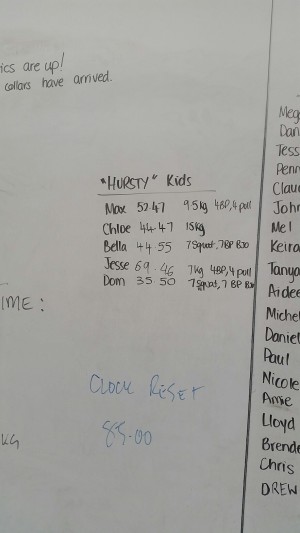 ics are up!
collars have arrived.
"HURSTY" Kids
Max 52.47 9.5kg 4BP, 4 pull
Chloe 44.47 15kg
Bella 44 55 7 Squat, 7BP
Jesse 69.46 7kg 4BP, 4 pull
Dom 35 50 7 Squat, 7 BP
IME:
CLOCK RESET
85.00
KG
Meg
Dan
Tess
Penn
Clau
John
Mel
Keira
Tanya
Ardee
Michel
Daniel
Paul
Nicole
Amie
Lloyd
Brende
Chris
DREW